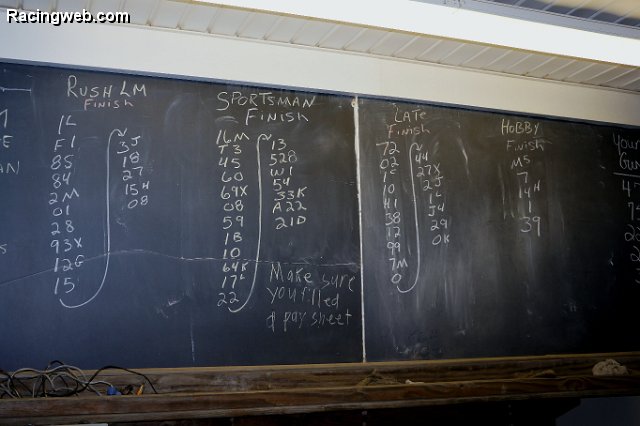 Racingweb.com
RUSH LM
Finish
1L
F1
85
84
2M
01
28
93X
12G
15
3J
18
27
15H
08
SPORTSMAN
FINISH
16M
T3
45
60
69X
08
59
1B
10
64K
17L
22
13
528
W1
54
33K
A22
21D
Make sure
you filled
a pay sheet
LATE
Finish
72
02
1C
10
41
38
12
99
7M
0
44
27X
2J
1L
J4
29
0K
HOBBY
Finish
MS
7
14H
1
39
Your